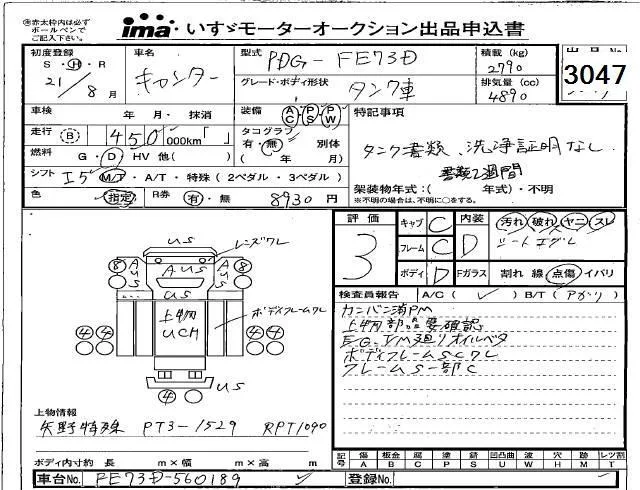 ※赤太枠内は必ず
ボールペンで
ご記入下さい。
ima いすゞモーターオークション出品申込書
初度登録 S・H・R 21/8月
車名 キャンター
型式 PDG-FE73D
積載 (kg) 2790
出品No. 3047
グレード・ボディ形状 タンク車
排気量 (cc) 4890
車検 年 月・抹消
装備 AC PS PW
特記事項
走行 B 450,000km「 」
タコグラフ 有・無 別体 ( 年 月)
タンク書類、洗浄証明なし
書類2週間
燃料 G・D・HV 他( )
シフト I5 M/T・A/T・特殊 (2ペダル・3ペダル)
架装物年式:( 年式)・不明
※不明の場合は、不明に○をする。
色 (指定) B券 有・無 8930円
評価 3
キャブ C 内装 D 汚れ 破れ ヤニ スレ
フレーム C シートコゲレ
ボディ D Fガラス 割れ 線 点傷 イバリ
検査員報告 A/C( ✓ ) B/T( アガリ )
カンバン消PM
上物部品要確認
EG、TM廻りオイルベタ
ボディフレームSCワレ
フレームS一部C
us
レンズワレ
8 AUS AUS AUS 8
us
上物 UCH
ボディフレームワレ
4 4 4 4
us
4
上物情報
矢野特殊 PT3-1529 RPT1090
ボディ内寸約 長 m×幅 m×高 m
記号 傷A 板金B 腐C 塗P 錆S 凹凸曲U 波W 穴H 跡M レツ割T
車台No. FE73D-560189
登録No.